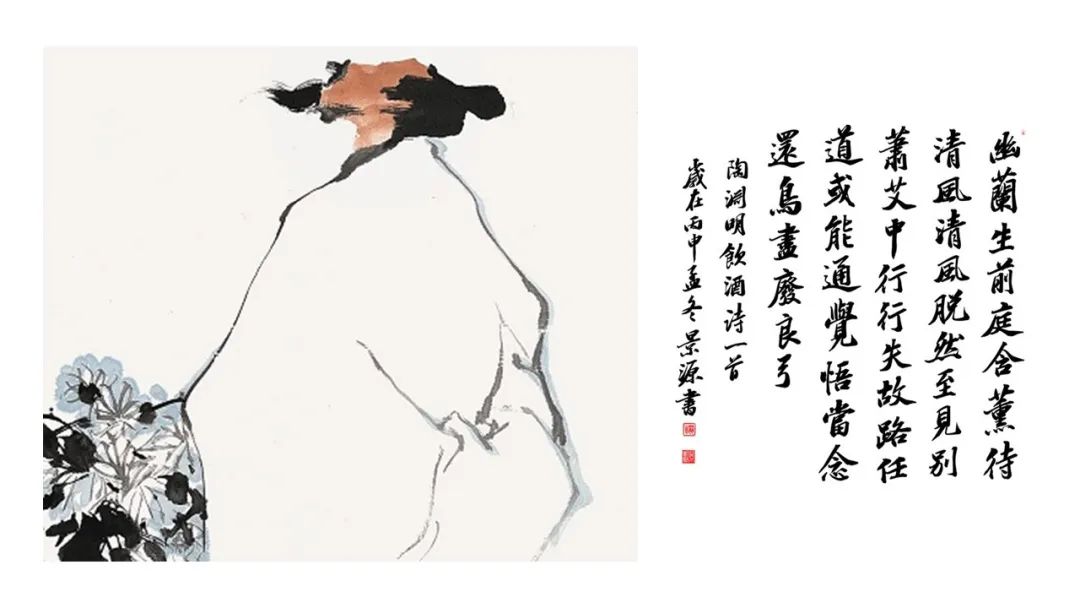 幽蘭生前庭含薰待
清風清風脱然至見别
蕭艾中行行失故路任
道或能通覺悟當念
還鳥盡廢良弓
陶淵明飲酒诗一首
歲在丙申孟冬景源書